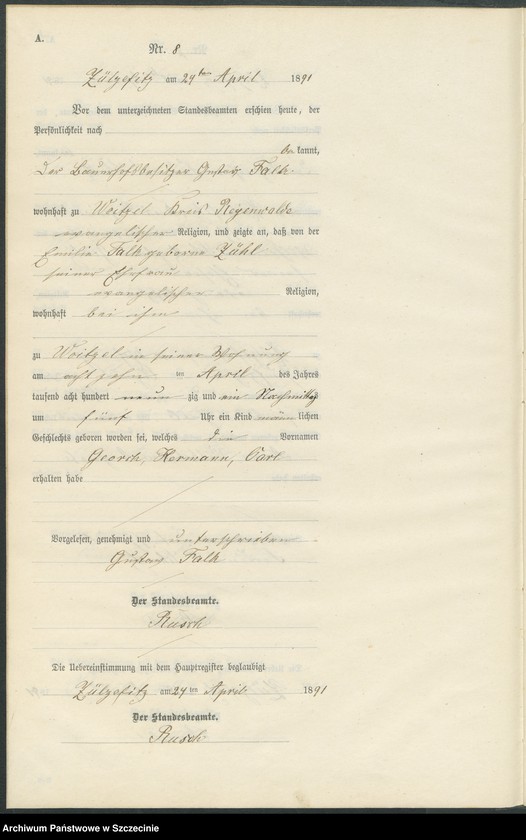 A.
Nr. 8
Zülzefitz am 24ten April 1891
Vor dem unterzeichneten Standesbeamten erschien heute, der
Persönlichkeit nach
be kannt,
Der Bauerhofsbesitzer Gustav Falk
wohnhaft zu Woitzel Kreis Regenwalde
evangelischer Religion, und zeigte an, daß von der
Emilie Falk geborne Zühl
seiner Ehefrau
evangelischer Religion,
wohnhaft bei ihm
zu Woitzel in seiner Wohnung
am acht zehn ten April des Jahres
tausend acht hundert neun zig und ein Nachmittags
um fünf Uhr ein Kind männ lichen
Geschlechts geboren worden sei, welches die Vornamen
Georch, Hermann, Carl
erhalten habe
Vorgelesen, genehmigt und unterschrieben
Gustav Falk
Der Standesbeamte.
Rusch
Die Uebereinstimmung mit dem Hauptregister beglaubigt
Zülzefitz am 24 ten April 1891
Der Standesbeamte.
Rusch
Archiwum Państwowe w Szczecinie